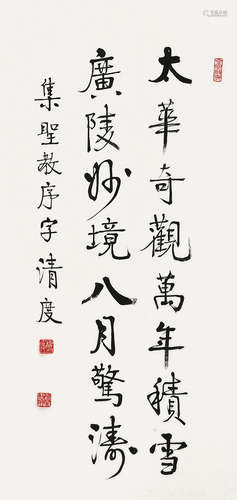 太華奇觀萬年積雪
廣陵妙境八月驚濤
集聖教序字清度